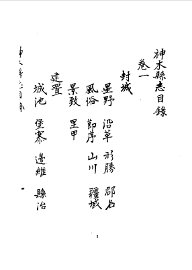 神木縣志目錄
卷一
封域
星野 沿革 形勝 郡名
風俗 節序 山川 疆域
景致 里甲
建置
城池 堡寨 邊維 縣治